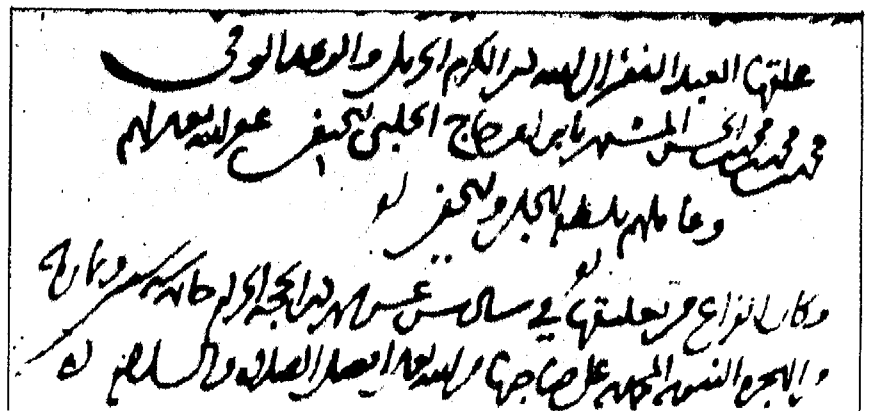 علقها العبد الفقير الى الله ذي الكرم الجزيل والوعد الوفي
محمد بن محمد بن محمد بن الحسن المشتهر بابن امير حاج الحلبي الحنفي غفر الله تعالى لهم
وعاملهم بلطفه الجلي والخفي
وكان الفراغ من تعليقها في سادس عشر شهر ذي الحجة الحرام خاتمة سنة وثمانمائة
من الهجرة النبوية المحمدية على صاحبها من الله تعالى افضل الصلاة والسلام